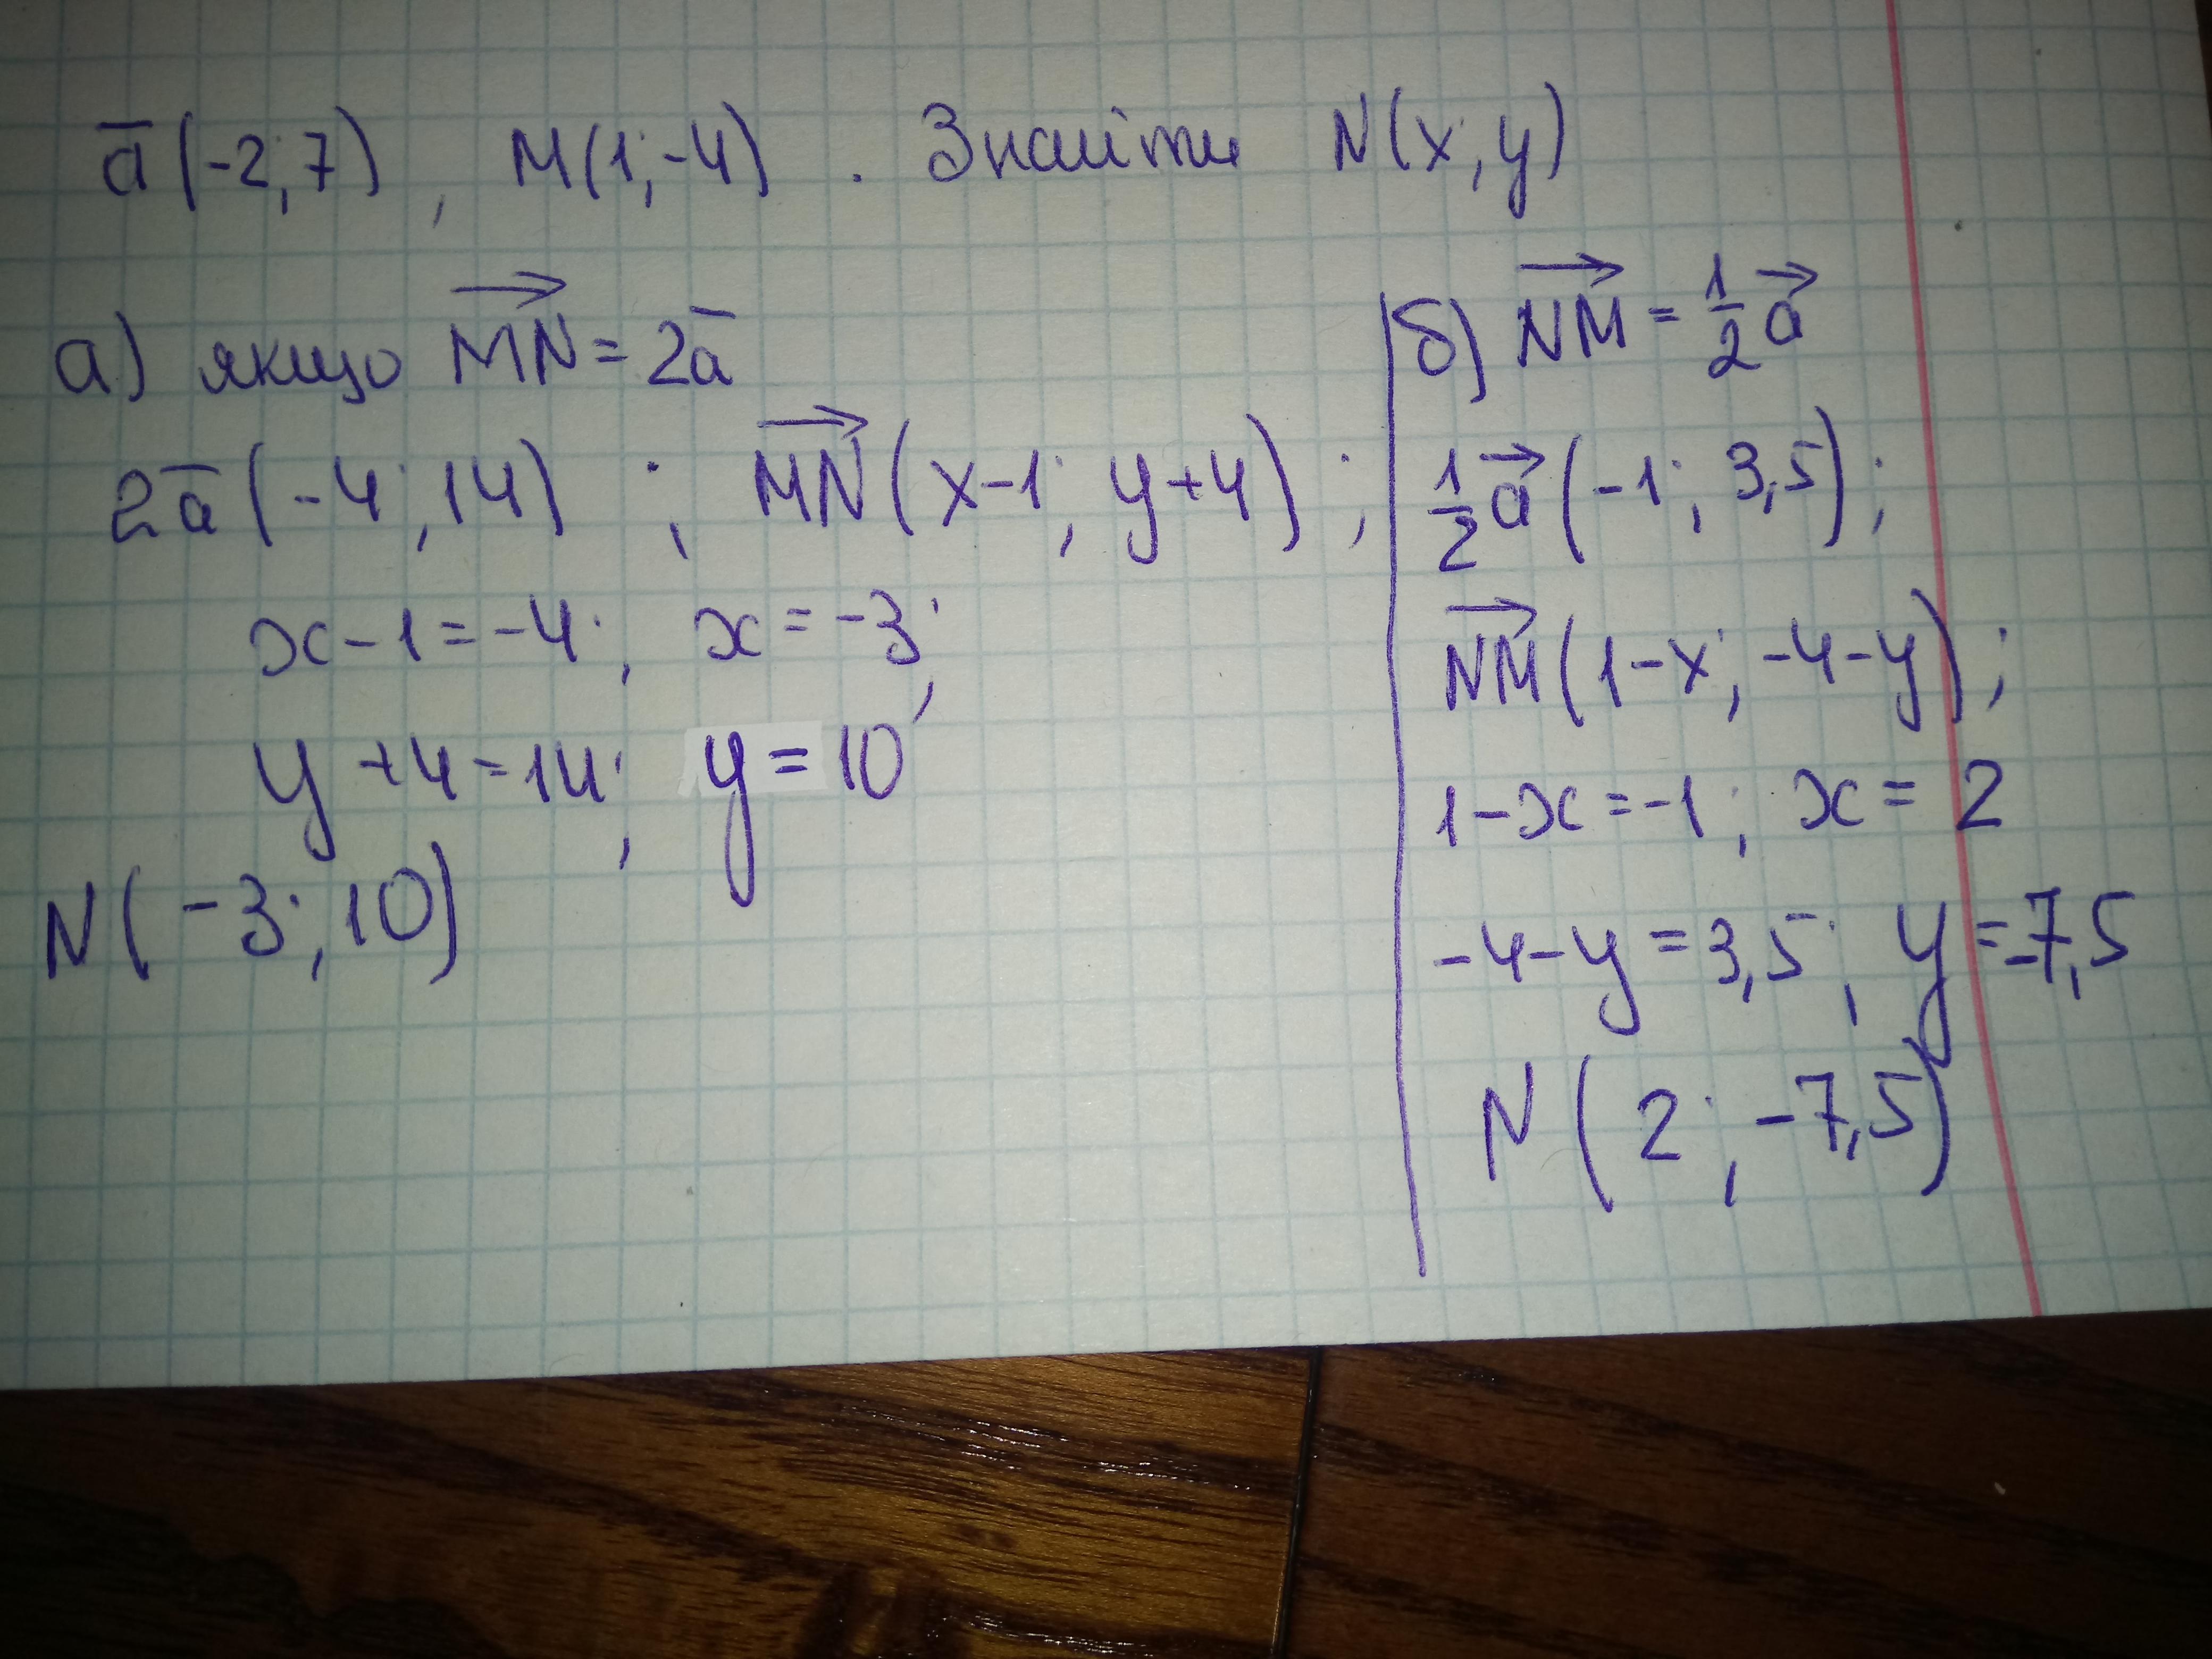 a̅(-2;7), M(1;-4). Знайти N(x;y)
а) якщо MN⃗ = 2a̅
2a̅(-4;14) ; MN⃗(x-1; y+4);
x-1=-4; x=-3;
y+4=14; y=10
N(-3;10)
б) NM⃗ = 1/2 a⃗
1/2 a⃗(-1; 3,5);
NM⃗(1-x; -4-y);
1-x=-1; x=2
-4-y=3,5; y=-7,5
N(2; -7,5)